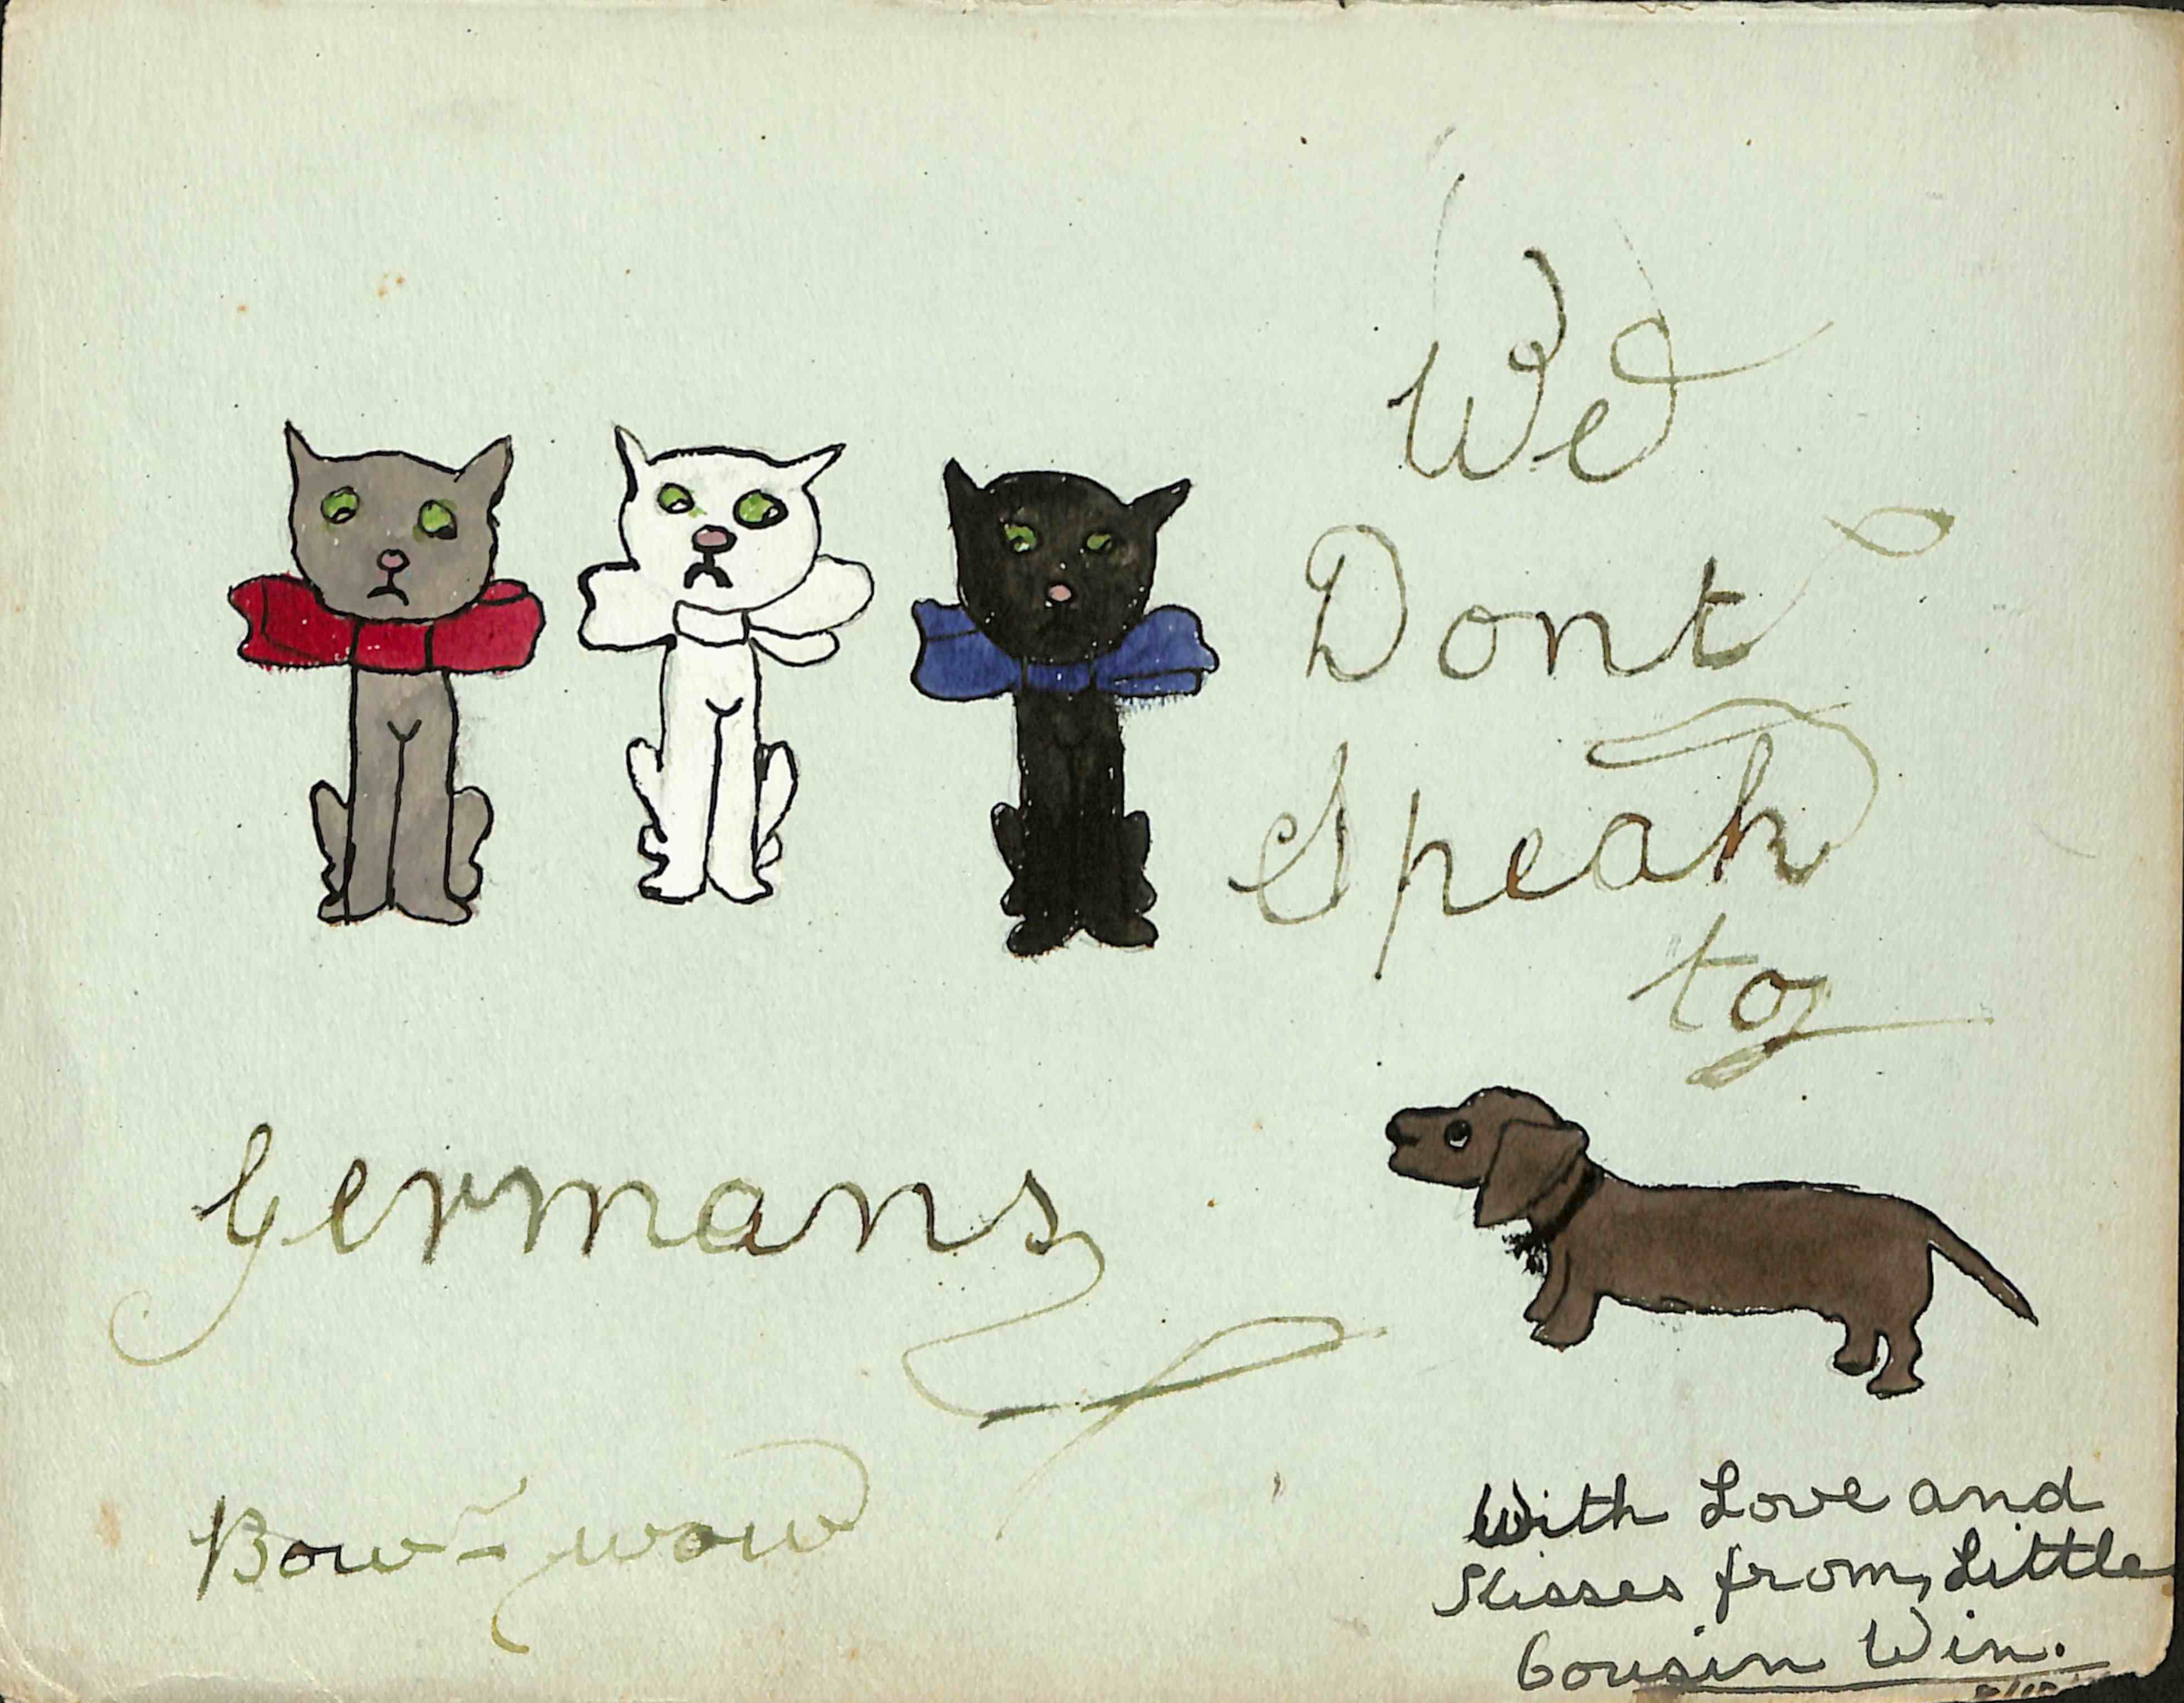 We
Dont
Speak
to
Germans
Bow-wow
With Love and
Kisses from, Little
Cousin Win.